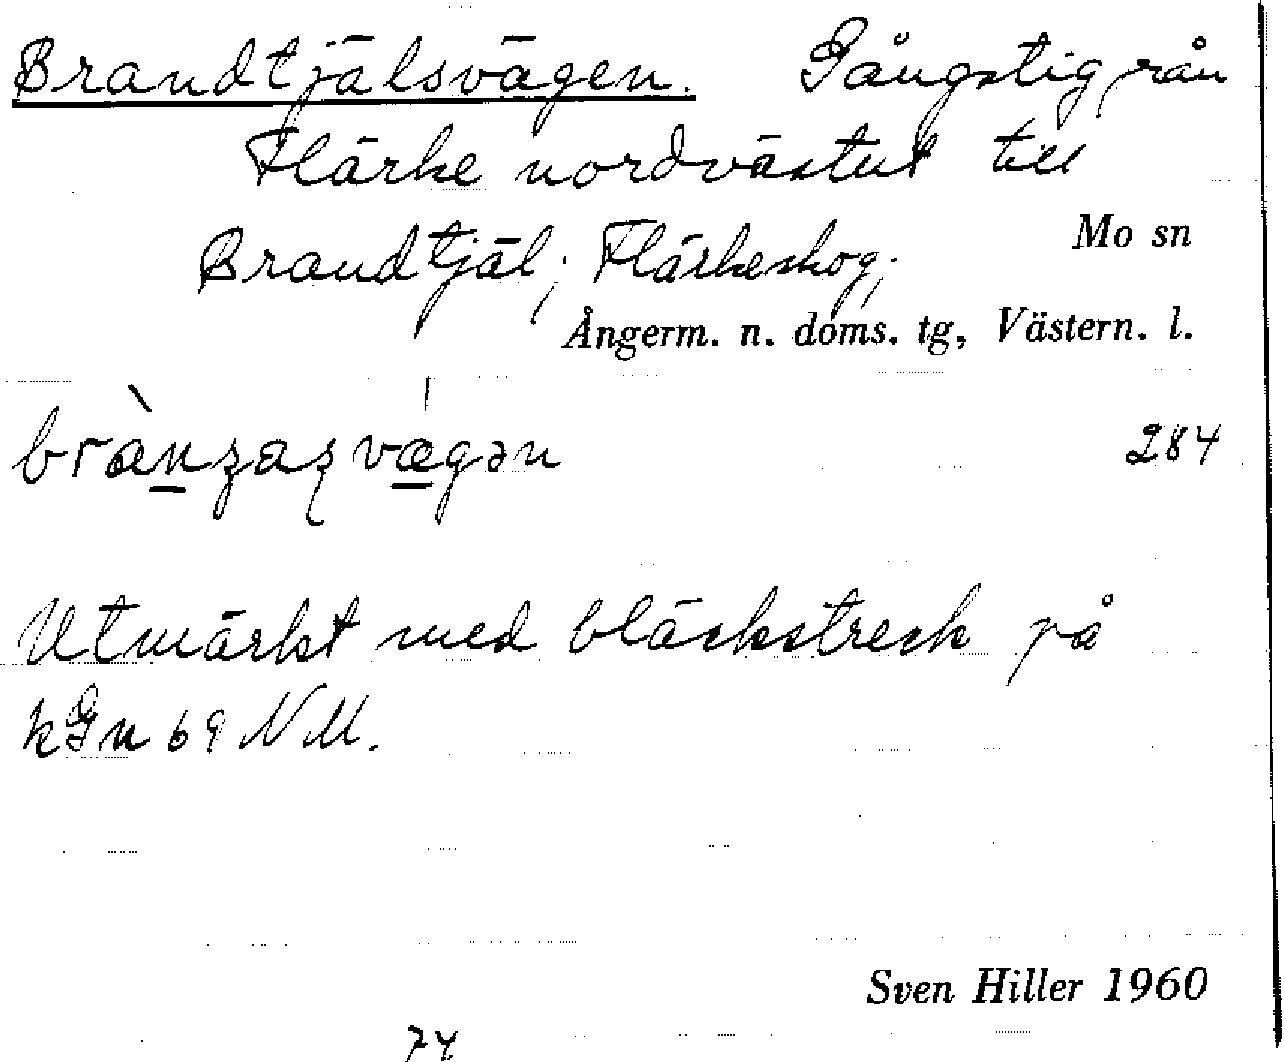 Brandtjälsvägen. Gångstig från
Flärke nordvästut till
Brandtjäl; Flärkeskog;
Mo sn
Ångerm. n. doms. tg, Västern. l.
284
Utmärkt med bläckstreck på
kGn 69 NM.
Sven Hiller 1960
74